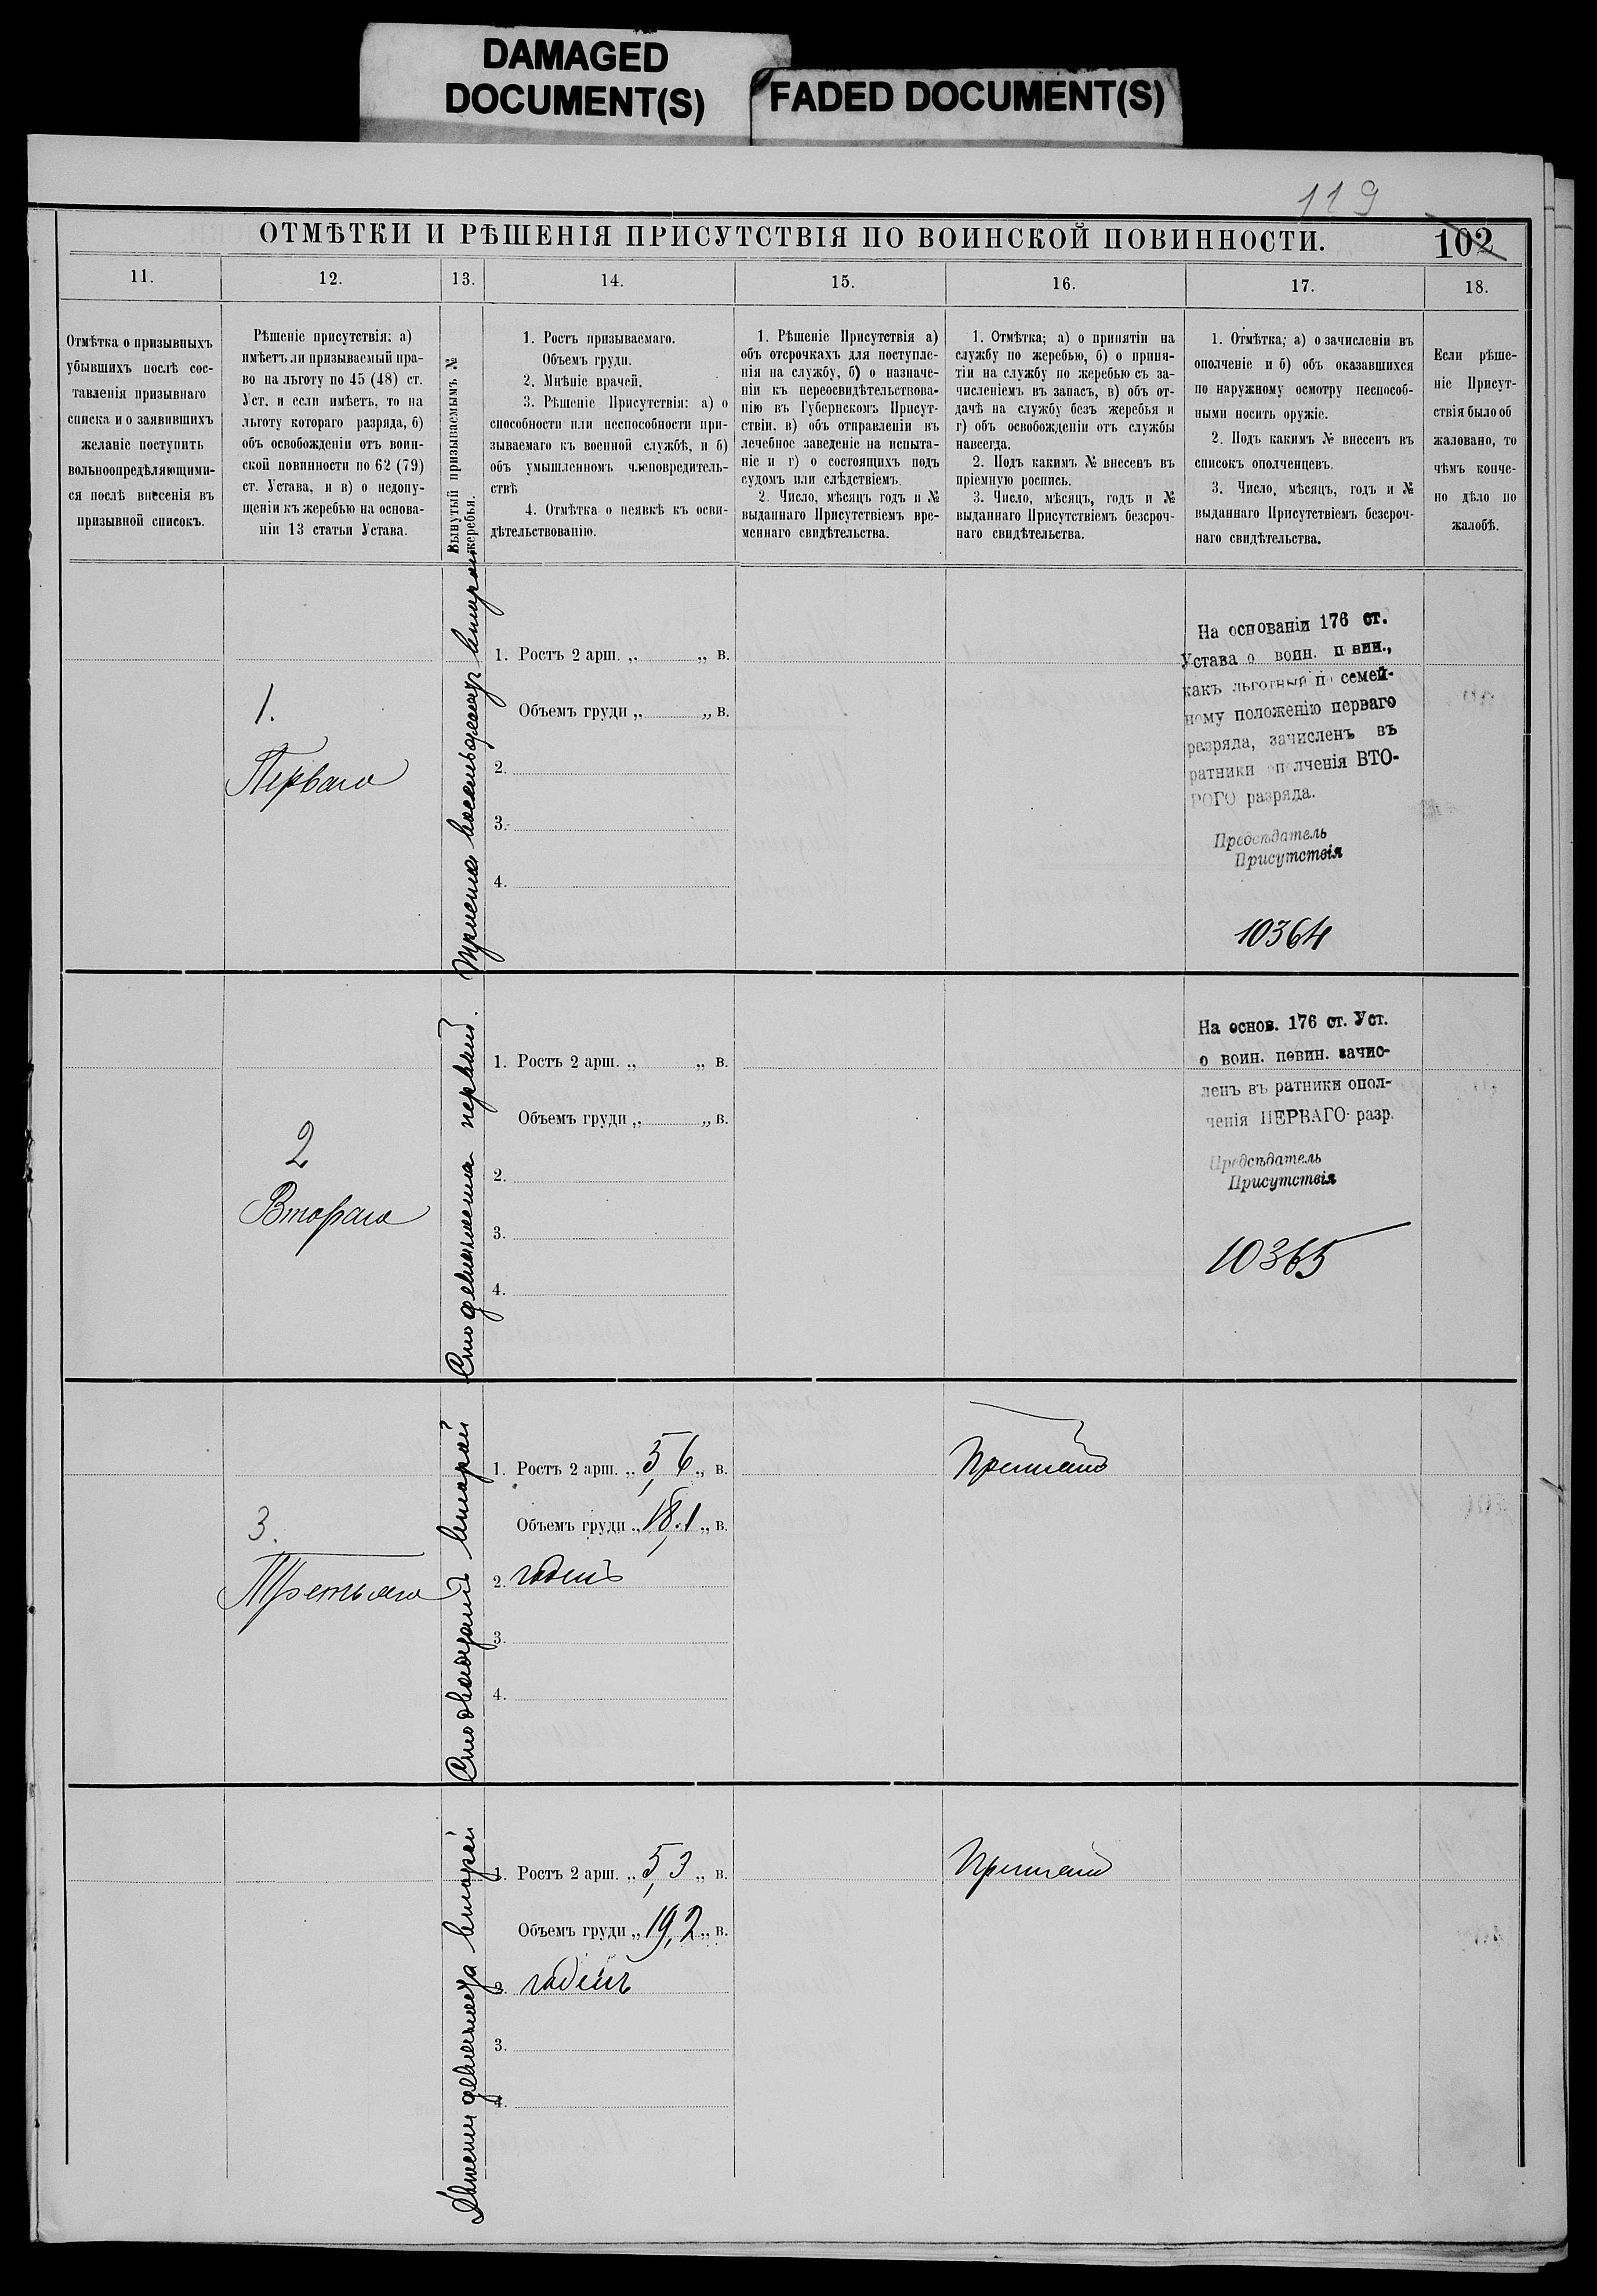 DAMAGED
DOCUMENT(S)
FADED DOCUMENT(S)
119
ОТМѢТКИ И РѢШЕНІЯ ПРИСУТСТВІЯ ПО ВОИНСКОЙ ПОВИННОСТИ.
102
11.
12.
13.
14.
15.
16.
17.
18.
Отмѣтка о призывныхъ
убывшихъ послѣ сос-
тавленія призывнаго
списка и о заявившихъ
желаніе поступить
вольноопредѣляющими-
ся послѣ внесенія въ
призывной списокъ.
Рѣшеніе присутствія: а)
имѣетъ ли призываемый пра-
во на льготу по 45 (48) ст.
Уст. и если имѣетъ, то на
льготу котораго разряда, б)
объ освобожденіи отъ воин-
ской повинности по 62 (79)
ст. Устава, и в) о недопу-
щеніи къ жеребью на основа-
ніи 13 статьи Устава.
Вынутый призываемымъ №
жеребья.
1. Ростъ призываемаго.
Объемъ груди.
2. Мнѣніе врачей.
3. Рѣшеніе Присутствія: а) о
способности или неспособности при-
зываемаго къ военной службѣ, и б)
объ умышленномъ членовредитель-
ствѣ
4. Отмѣтка о неявкѣ къ осви-
дѣтельствованію.
1. Рѣшеніе Присутствія а)
объ отсрочкахъ для поступле-
нія на службу, б) о назначе-
ніи къ переосвидѣтельствова-
нію въ Губернскомъ Присут-
ствіи, в) объ отправленіи въ
лечебное заведеніе на испыта-
ніе и г) о состоящихъ подъ
судомъ или слѣдствіемъ.
2. Число, мѣсяцъ годъ и №
выданнаго Присутствіемъ вре-
меннаго свидѣтельства.
1. Отмѣтка; а) о принятіи на
службу по жеребью, б) о приня-
тіи на службу по жеребью съ за-
численіемъ въ запасъ, в) объ от-
дачѣ на службу безъ жеребья и
г) объ освобожденіи отъ службы
навсегда.
2. Подъ какимъ № внесенъ въ
пріемную роспись.
3. Число, мѣсяцъ, годъ и №
выданнаго Присутствіемъ безсроч-
наго свидѣтельства.
1. Отмѣтка; а) о зачисленіи въ
ополченіе и б) объ оказавшихся
по наружному осмотру неспособ-
ными носить оружіе.
2. Подъ какимъ № внесенъ въ
списокъ ополченцевъ.
3. Число, мѣсяцъ, годъ и №
выданнаго Присутствіемъ безсроч-
наго свидѣтельства.
Если рѣше-
ніе Присут-
ствія было об
жаловано, то
чѣмъ конче-
но дѣло по
жалобѣ.
1.
Перваго
Триста восемьдесятъ второй
1. Ростъ 2 арш. „ „ в.
Объемъ груди „ „ в.
2.
3.
4.
На основаніи 176 ст.
Устава о воин. повин.,
какъ льготный по семей-
ному положенію перваго
разряда, зачисленъ въ
ратники ополченія ВТО-
РОГО разряда.
Предсѣдатель
Присутствія
10364
2
Втораго
Сто девяносто первый.
1. Ростъ 2 арш. „ „ в.
Объемъ груди „ „ в.
2.
3.
4.
На основ. 176 ст. Уст.
о воин. повин. зачис-
ленъ въ ратники опол-
ченія ПЕРВАГО разр.
Предсѣдатель
Присутствія
10365
3.
Третьяго
Сто двадцать второй
1. Ростъ 2 арш. „ 5,6 „ в.
Объемъ груди „ 18,1 „ в.
2. годенъ
3.
4.
Принятъ
Двѣсти девяносто второй
1. Ростъ 2 арш. „ 5,3 „ в.
Объемъ груди „ 19,2 „ в.
2. годенъ
3.
4.
Принятъ